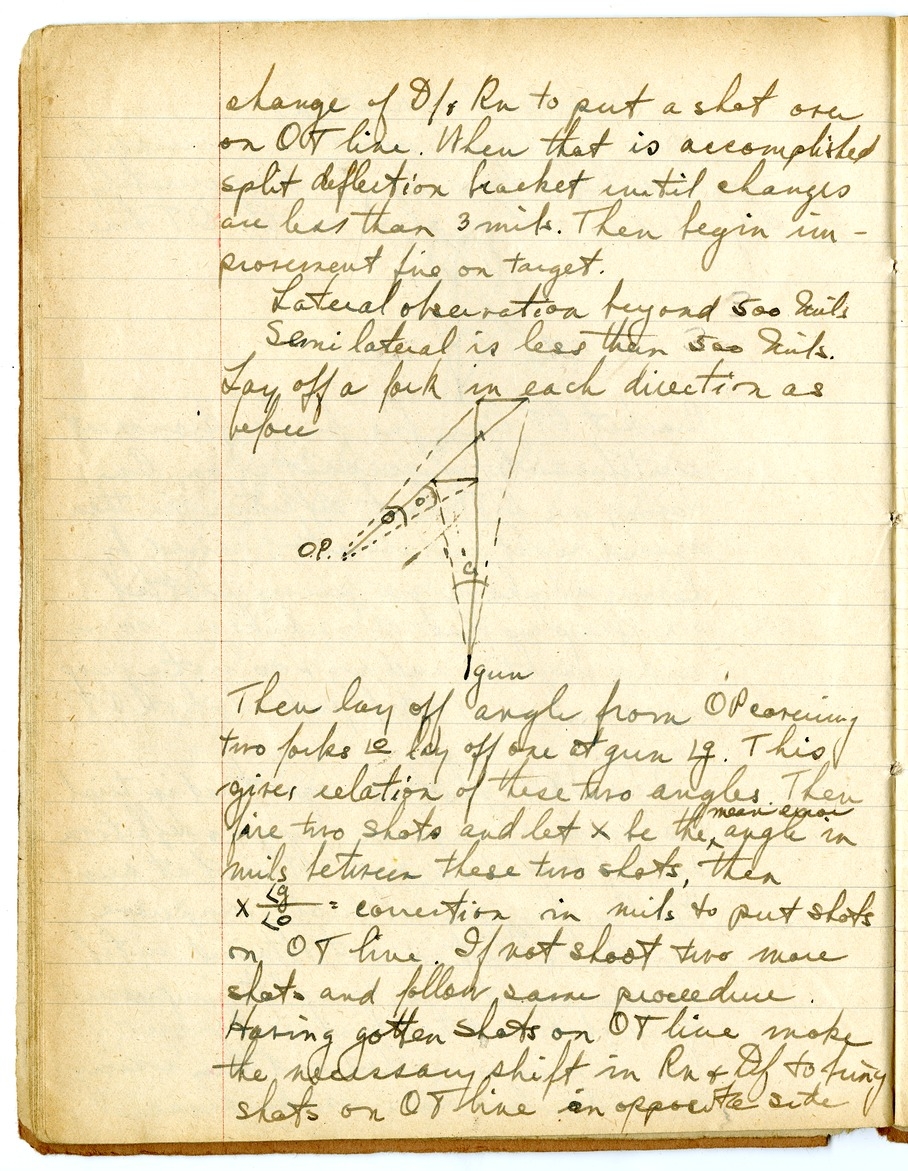 change of Df & Rn to put a shot over
on OT line. When that is accomplished
split deflection bracket until changes
are less than 3 mils. Then begin im-
provement fire on target.
Lateral observation beyond 500 Mils
Semi lateral is less than 300 Mils.
Lay off a fork in each direction as
before
O
O
O.P.
g
gun
Then lay off angle from OP covering
two forks ∠o lay off one at gun ∠g. This
gives relation of these two angles. Then
mean error
fire two shots and let x be the ^ angle in
mils between these two shots, then
x ∠g/∠o = correction in mils to put shots
on OT line. If not shoot two more
shots and follow same proceedure.
Having gotten shots on OT line make
the necessary shift in Rn & Df to bring
shots on OT line on opposite side